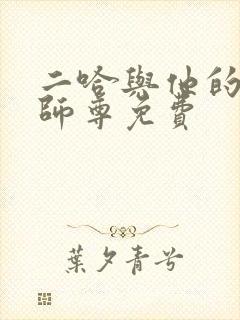 二哈與他的
師尊免費
葉夕青兮